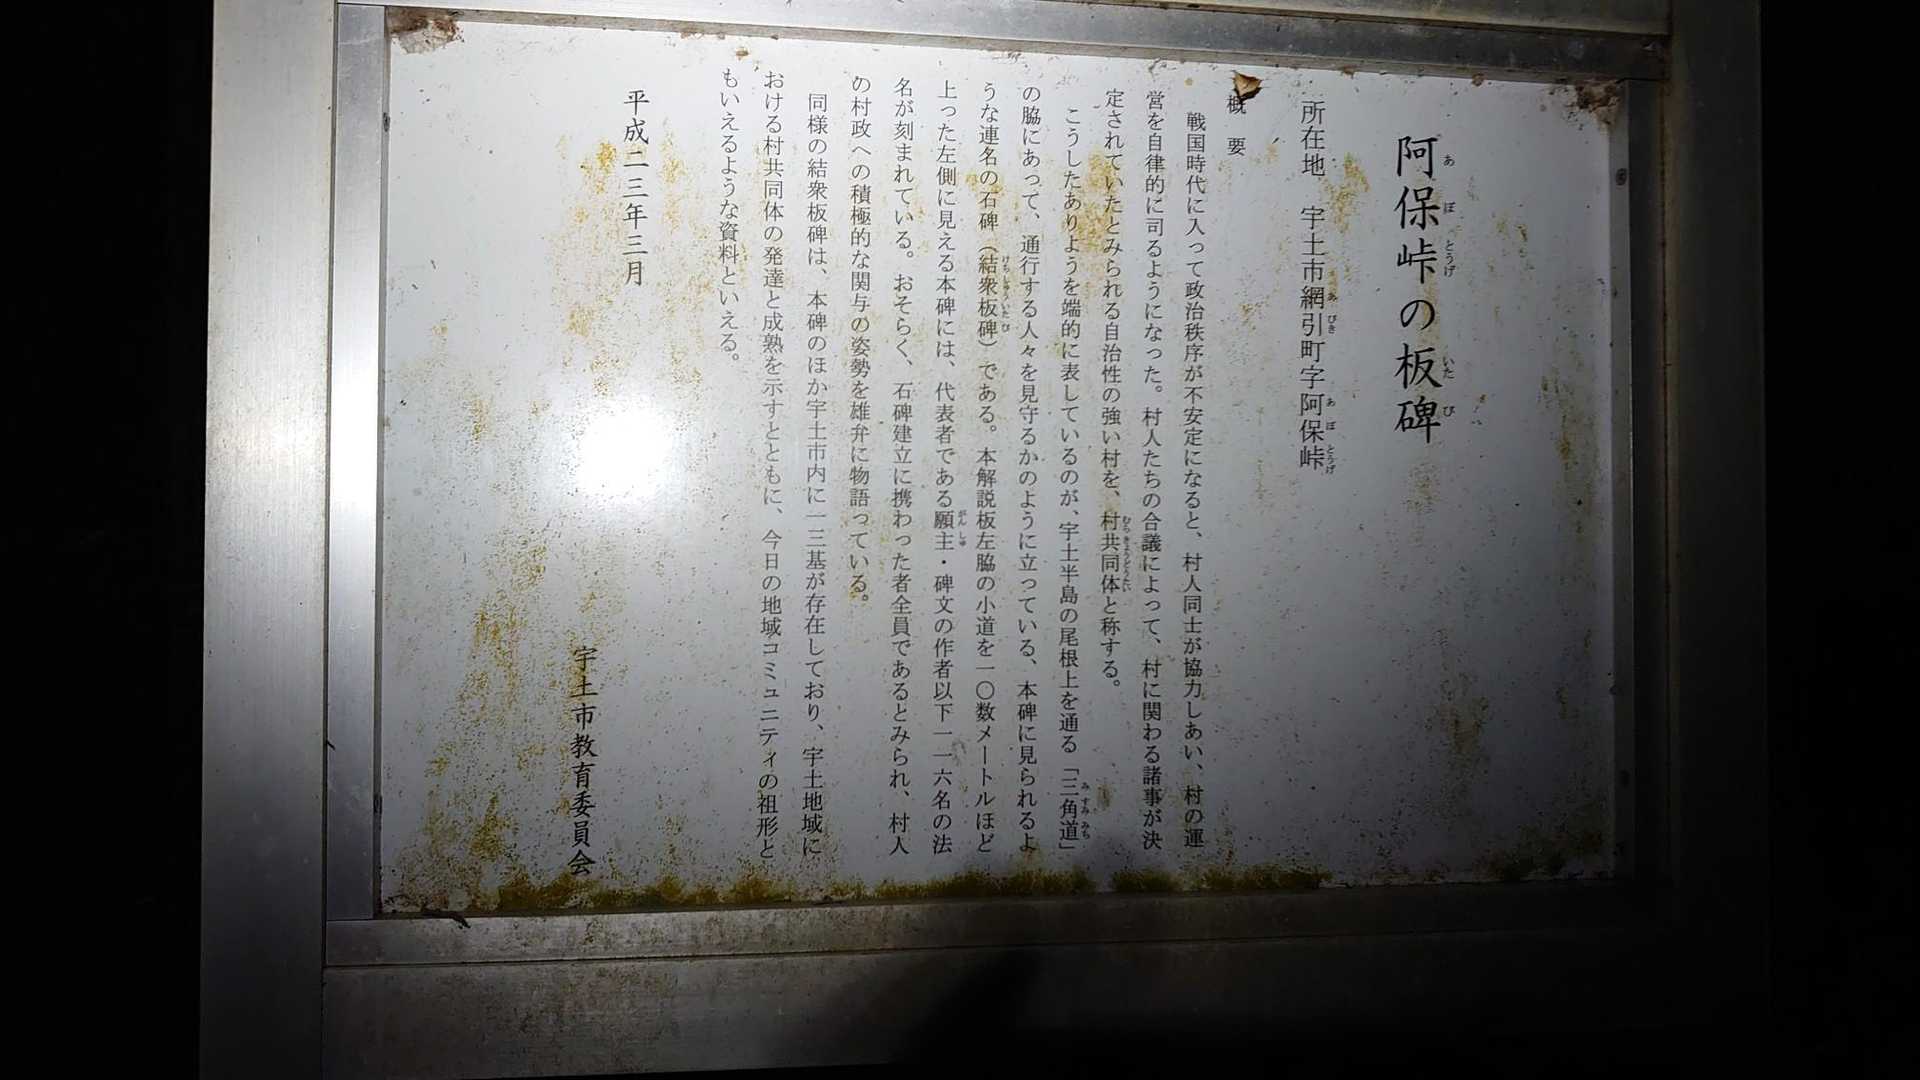 阿保峠の板碑
所在地　宇土市網引町字阿保峠
概　要
戦国時代に入って政治秩序が不安定になると、村人同士が協力しあい、村の運
営を自律的に司るようになった。村人たちの合議によって、村に関わる諸事が決
定されていたとみられる自治性の強い村を、村共同体と称する。
こうしたありようを端的に表しているのが、宇土半島の尾根上を通る「三角道」
の脇にあって、通行する人々を見守るかのように立っている、本碑に見られるよ
うな連名の石碑（結衆板碑）である。本解説板左脇の小道を一〇数メートルほど
上った左側に見える本碑には、代表者である願主・碑文の作者以下一一六名の法
名が刻まれている。おそらく、石碑建立に携わった者全員であるとみられ、村人
の村政への積極的な関与の姿勢を雄弁に物語っている。
同様の結衆板碑は、本碑のほか宇土市内に一三基が存在しており、宇土地域に
おける村共同体の発達と成熟を示すとともに、今日の地域コミュニティの祖形と
もいえるような資料といえる。
平成二三年三月
宇土市教育委員会